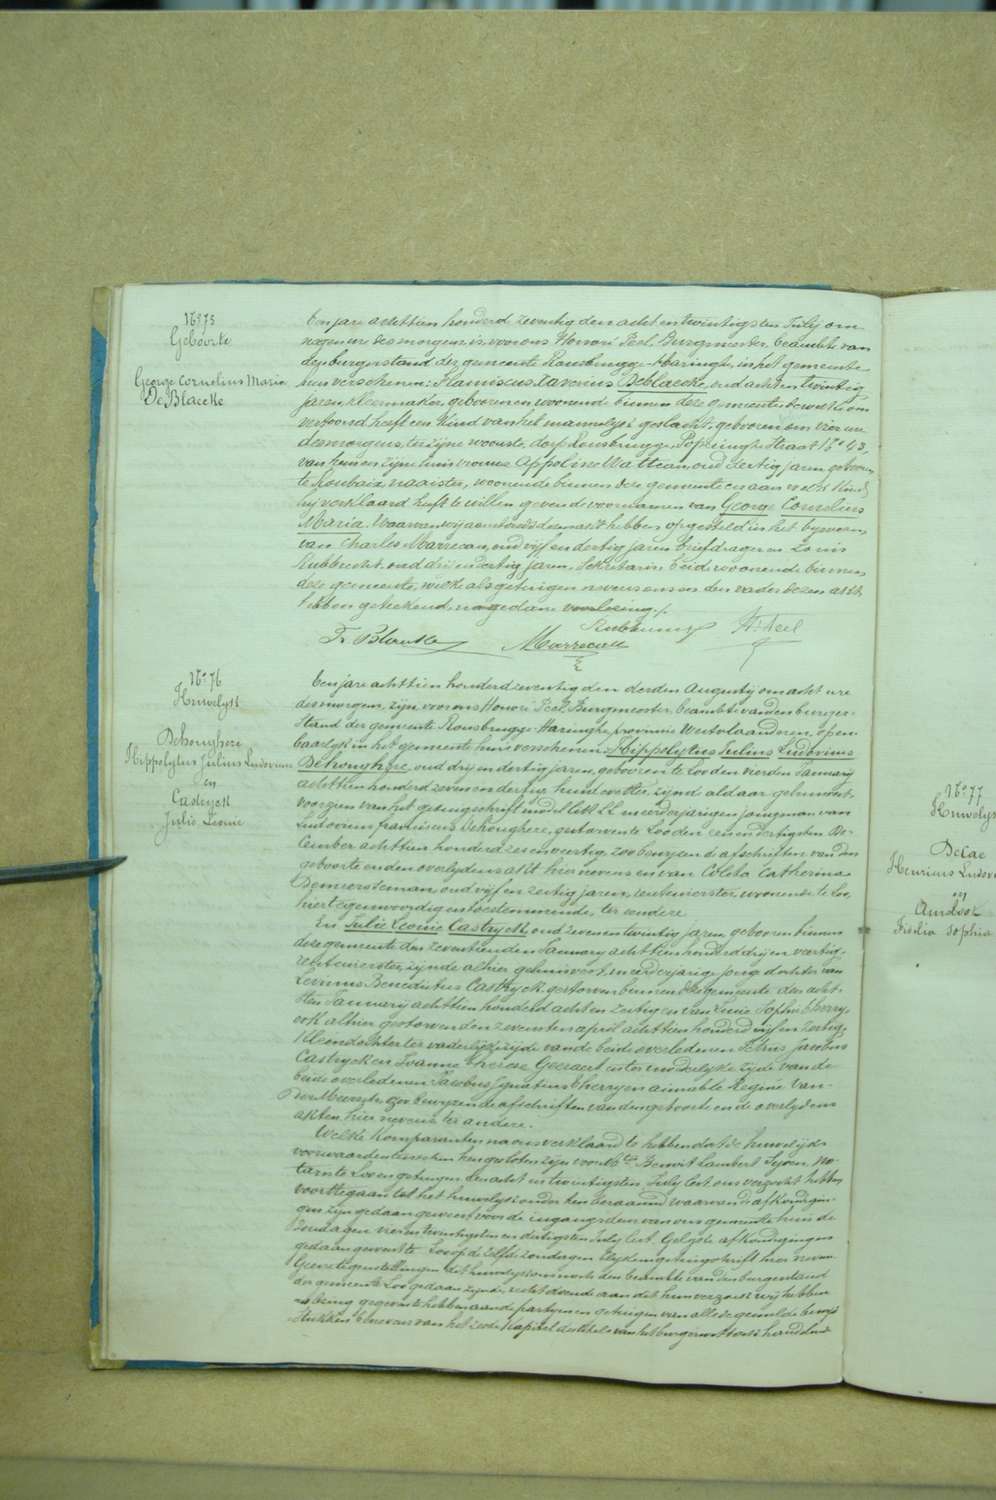 N° 75
Geboorte
George Cornelius Maria
De Blaecke
Een jare achttien honderd zeventig den acht en twintigsten July om
negen ure des morgens, is voor ons Honoré Peel, Burgmeester, beambte van
den burgerstand der gemeente Rousbrugge-Haringhe, in het gemeente
huis verschenen: Franciscus Xaverius Deblaecke, oud acht en twintig
jaren, kleermaker, geboren en woonende binnen deze gemeente dewelke ons
vertoond heeft een Kind van het mannelyk geslacht, geboren om vier ure
des morgens, ter zijne woonste, dorp Rousbrugge, Poperinghe Straat N° 43,
van hem en zijne huisvrouwe Appoline Watteau, oud dertig jaren, geboren
te Roubaix, naaister, woonende binnen deze gemeente en aan welk Kind
hij verklaard heeft te willen geven de voornamen van George Cornelius
Maria. Waarvan wij aanstonds dezen akt hebben opgesteld in het bywezen
van Charles Marrecau, oud vijf en dertig jaren briefdrager en Louis
Rubbrecht, oud drij en dertig jaren, Sekretaris, beide woonende binnen
deze gemeente, welke als getuigen nevens ons en den vader dezen akt
hebben geteekend, na gedane voorlezing./.
F. Blaecke Marrecau H. Peel
N° 76
Huwelyk
Dehoughere
Hippolytus Julius Ludovicus
en
Castryck
Julie Leonie
Een jare achttien honderd zeventig den derden Augusty om acht ure
des morgens, zijn voor ons Honoré Peel, Burgmeester, beambte van den burger-
stand der gemeente Rousbrugge-Haringhe, provincie Westvlaanderen, open-
baarlyk in het gemeente huis verschenen: Hippolytus Julius Ludovicus
Dehoughere, oud drij en dertig jaren, geboren te Loo den vierden January
achttien honderd zeven en dertig, zijnde aldaar gehuisvest,
voorzien van het getuigschrift model litt. LL meerderjarigen jongman van
Ludovicus franciscus Dehoughere, gestorven te Loo den een en dertigsten De-
cember achttien honderd zes en veertig, zoo bewyzen de afschriften van den
geboorte en den overlydens akt hier nevens en van Coleta Catherina
Demeersseman, oud vijf en zestig jaren, rentenierster, woonende te Loo,
hier tegenwoordig en toestemmende, ter eendere
En Julie Leonie Castryck, oud zeven en twintig jaren, geboren binnen
deze gemeente den zeventienden January achttien honderd drij en veertig,
rentenierster, zijnde alhier gehuisvest, meerderjarige jonge dochter van
Livinus Benedictus Castryck gestorven binnen deze gemeente den acht-
sten January achttien honderd acht en zestig en van Lucie Sophie Cherry-
ock alhier gestorven den zevensten april achttien honderd vijf en zestig,
Kleendochter ter vaderlijke zijde van de beide overledenen Petrus Jacobus
Castryck en Joanne Therese Goeraert en ter moederlyke zijde van de
beide overledenen Jacobus Ignatius Cherryen aimable Regine Van-
der Meersch, zoo bewyzen de afschriften van den geboorte en de overlydens
akten hier nevens ter andere.
Welke Komparanten na ons verklaard te hebben dat de huwelijks
voorwaarden tusschen hen gesloten zijn voor Benoit Lambert Syoen, No-
taris te Loo en getuigen den acht en twintigsten July lest, ons verzocht hebben
voort te gaan tot het huwelyk onder hen beraamd, waarvan de afkondigin-
gen zijn gedaan geweest voor de ingangsdeur van ons gemeente huis de
zondagen vier en twintigsten en dertigsten July lest. Gelyke afkondigingen
gedaan geweest te Loo op de zelfde zondagen blykens getuigschrift hier neven
Geene tegenstellingen dit huwelyk aan ons noch den beambte van den burgerstand
der gemeente Loo gedaan zijnde, recht doende aan dit hun verzoek wij hebben
na lezing gegeven te hebben aan de partyen en getuigen van alle de gemelde bewijs
stukken benevens van het zesde Kapittel des titels van het burgerwetboek handelende
N° 77
Huwelyk
Decae
Henricus Ludovi
en
Amdoor
Fidelia Sophia